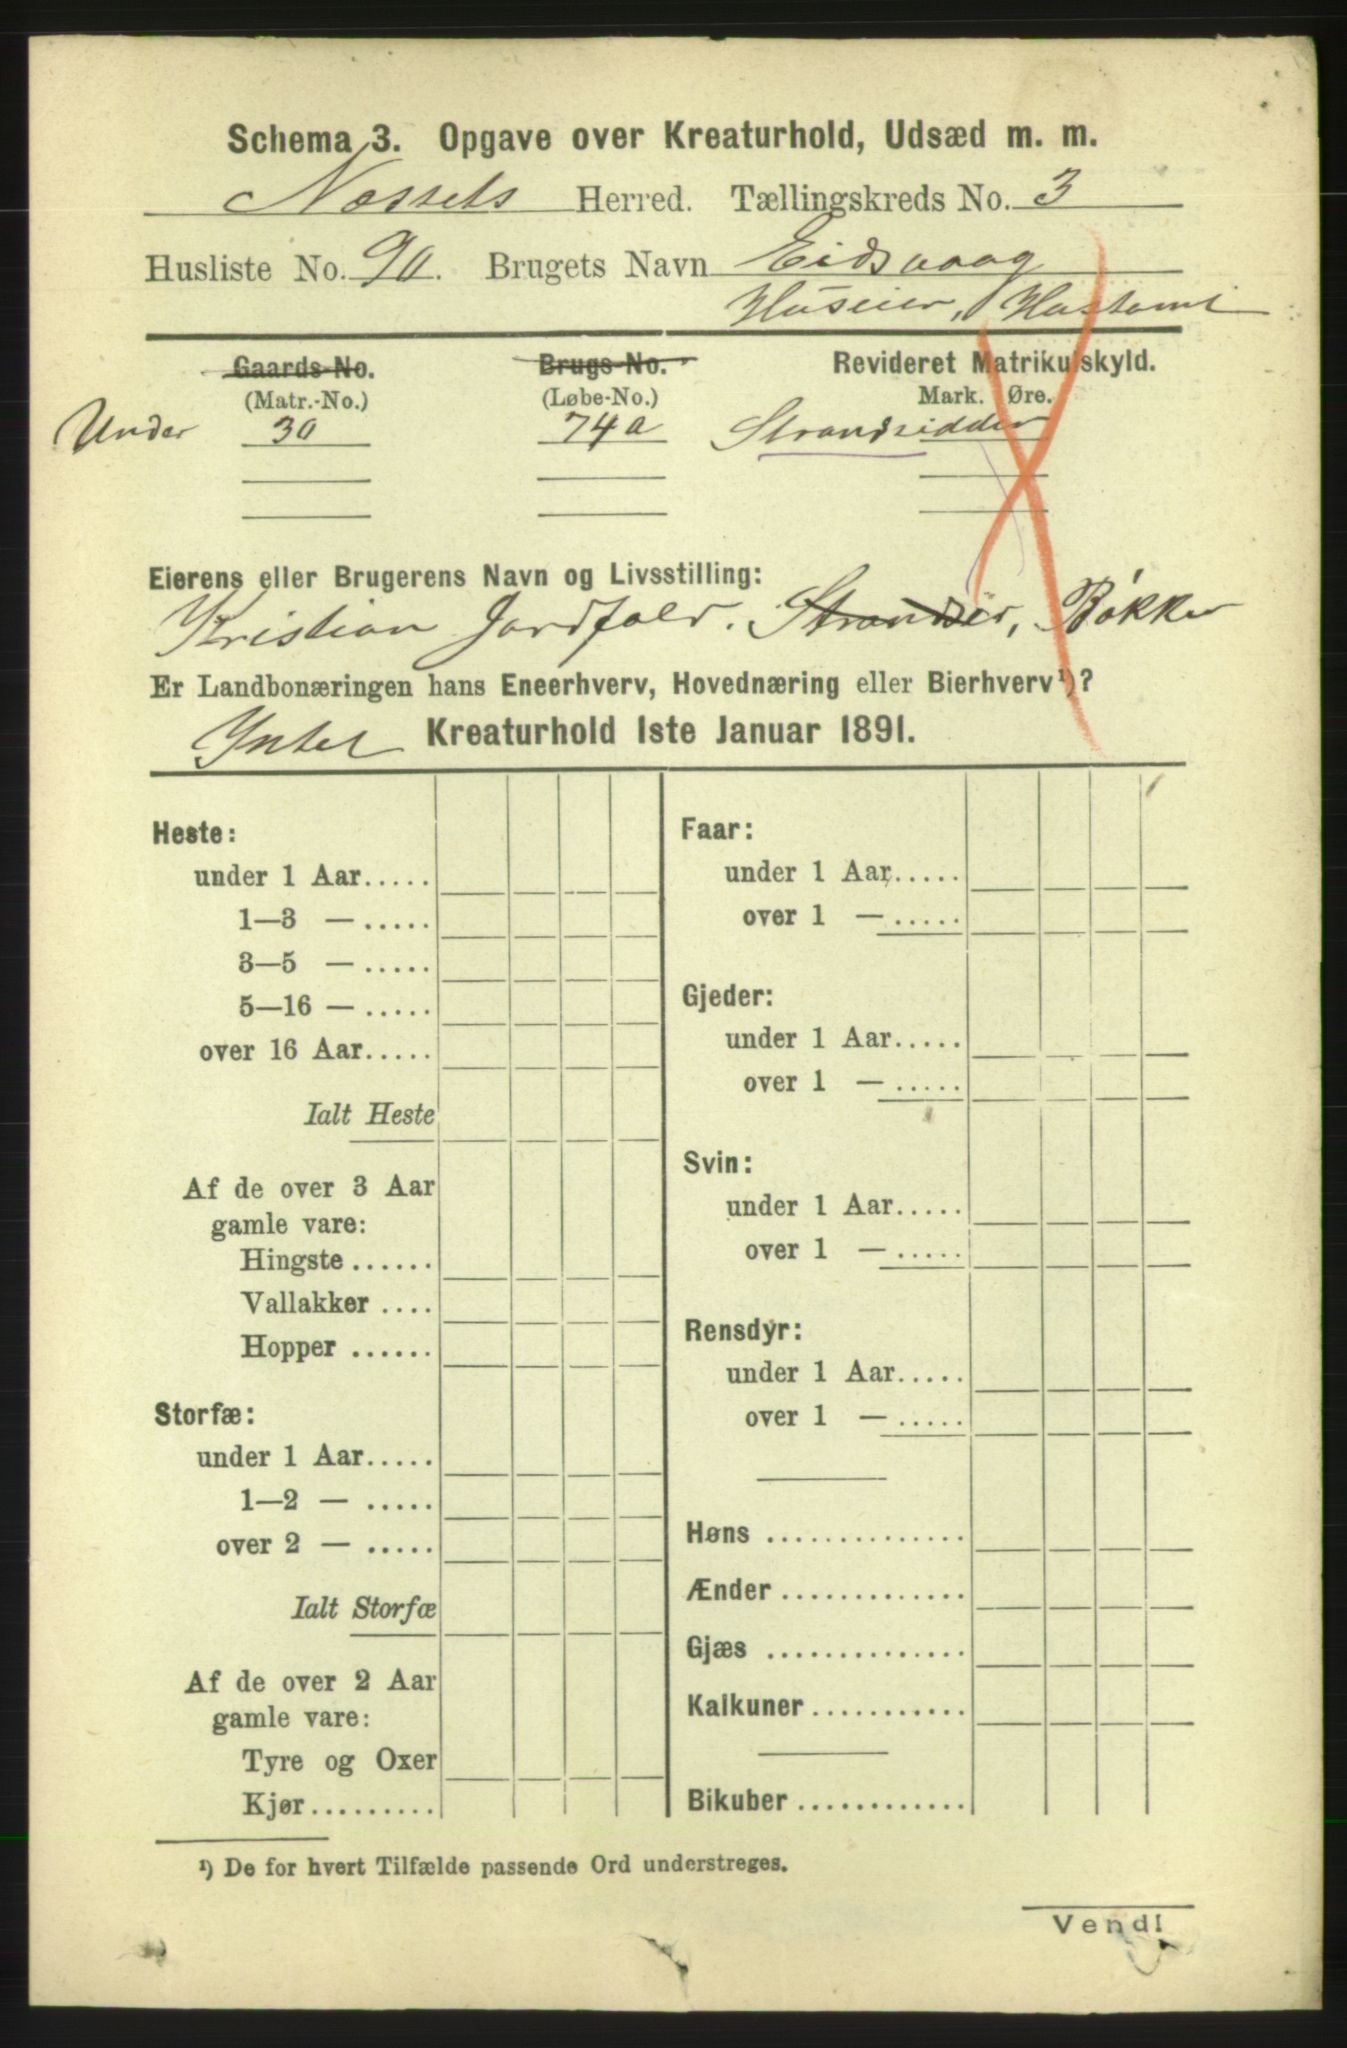 Schema 3. Opgave over Kreaturhold, Udsæd m. m.
Næssets Herred. Tællingskreds No. 3
Husliste No. 90. Brugets Navn Eidsvaag
Huseier,
Gaards-No. Brugs-No. Revideret Matrikulskyld.
(Matr.-No.) (Løbe-No.) Mark. Øre.
Under 30 74a Strandsidder
Eierens eller Brugerens Navn og Livsstilling:
Kristian Jordfald. Strandsid, Bøkker
Er Landbonæringen hans Eneerhverv, Hovednæring eller Bierhverv¹)?
Intet Kreaturhold 1ste Januar 1891.
Heste:
under 1 Aar.....
1—3 — .....
3—5 — .....
5—16 — .....
over 16 Aar.....
Ialt Heste
Af de over 3 Aar
gamle vare:
Hingste ......
Vallakker ....
Hopper ......
Storfæ:
under 1 Aar.....
1—2 — .....
over 2 — .....
Ialt Storfæ
Af de over 2 Aar
gamle vare:
Tyre og Oxer
Kjør.........
Faar:
under 1 Aar.....
over 1 — .....
Gjeder:
under 1 Aar.....
over 1 — .....
Svin:
under 1 Aar.....
over 1 — .....
Rensdyr:
under 1 Aar.....
over 1 — .....
Høns ..............
Ænder .............
Gjæs ..............
Kalkuner ...........
Bikuber ............
¹) De for hvert Tilfælde passende Ord understreges.
Vend!